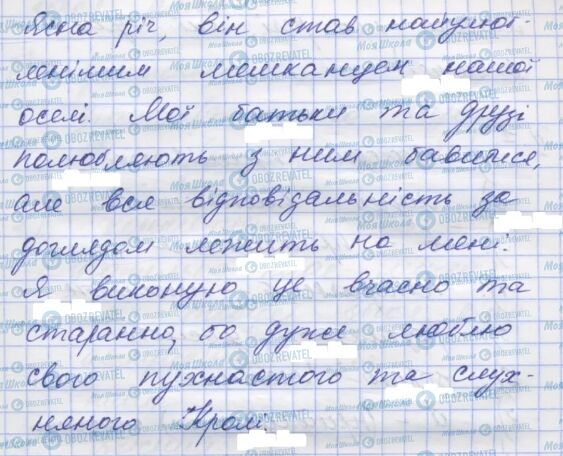 Ясна річ, він став найулюб-
ленішим мешканцем нашої
оселі. Мої батьки та друзі
полюбляють з ним бавитися,
але вся відповідальність за
доглядом лежить на мені.
Я виконую це вчасно та
старанно, бо дуже люблю
свого пухнастого та слух-
няного Кролі.